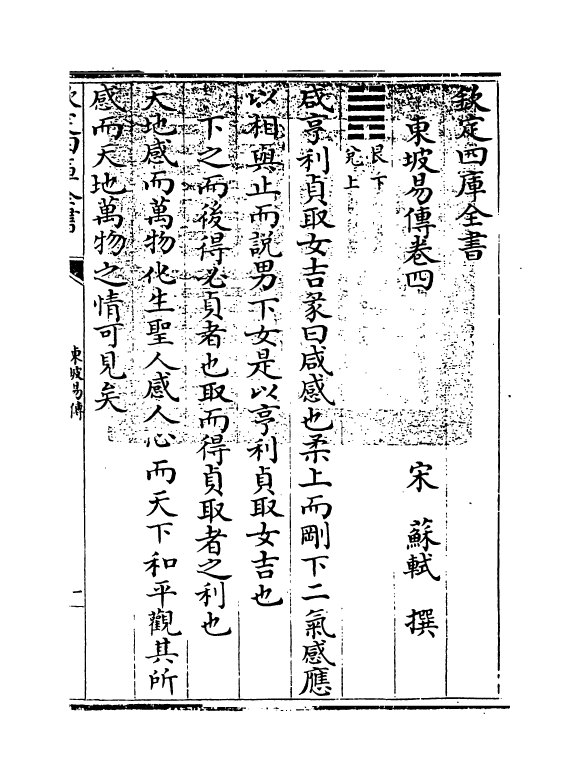 欽定四庫全書
東坡易傳卷四
宋　蘇軾　撰
艮下
兌上
咸亨利貞取女吉彖曰咸感也柔上而剛下二氣感應
以相與止而說男下女是以亨利貞取女吉也
下之而後得必貞者也取而得貞取者之利也
天地感而萬物化生聖人感人心而天下和平觀其所
感而天地萬物之情可見矣
欽定四庫全書
東坡易傳